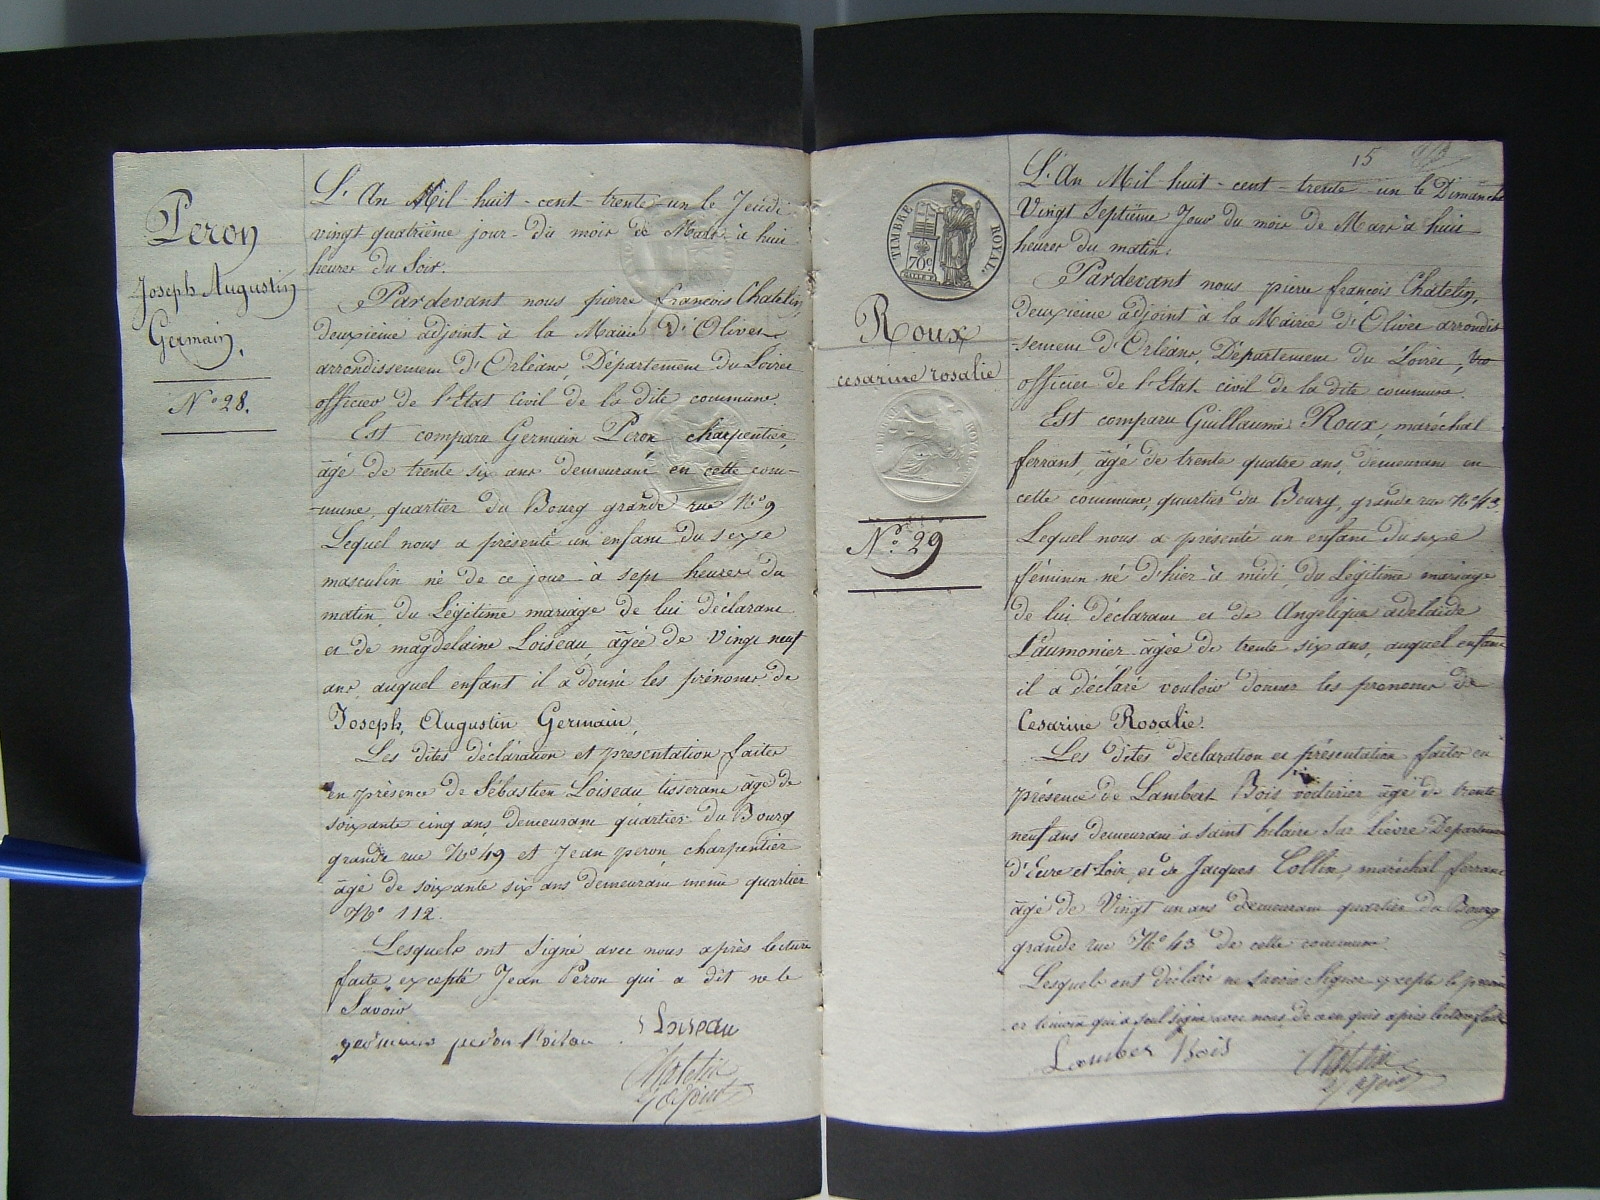 Peron
Joseph Augustin
Germain.
N° 28.
L'An Mil huit-cent-trente-un le Jeudi
vingt quatrième jour du mois de Mars à huit
heures du Soir.
Pardevant nous pierre françois Chatelin,
deuxième adjoint à la Mairie d'Olivet
arrondissement d'Orléans, Département du Loiret
officier de l'Etat Civil de la dite commune.
Est comparu Germain Peron charpentier,
âgé de trente six ans demeurant en cette com-
-mune, quartier du Bourg grande rue N° 9
Lequel nous a présenté un enfant du sexe
masculin né de ce jour à sept heures du
matin du Légitime mariage de lui déclarant
et de magdelaine Loiseau âgée de Vingt neuf
ans, auquel enfant il a donné les prénoms de
Joseph, Augustin Germain,
Les dites déclaration et présentation faites
en présence de Sébastien Loiseau tisserant âgé de
soixante cinq ans demeurant quartier du Bourg
grande rue N° 49 et Jean peron charpentier
âgé de soixante six ans demeurant même quartier
N° 112.
Lesquels ont signé avec nous après lecture
faite, excepté Jean Peron qui a dit ne le
Savoir
germain peron
Loiseau
Chatelin
adjoint
15
TIMBRE ROYAL.
70c
Roux
cesarine rosalie
N° 29
L'An Mil-huit-cent-trente-un le Dimanche
Vingt Septième Jour du mois de Mars à huit
heures du matin.
Pardevant nous pierre françois Chatelin,
deuxième adjoint à la Mairie d'Olivet arrondis-
-sement d'Orléans, Département du Loiret,
officier de l'Etat civil de la dite commune.
Est comparu Guillaume Roux, maréchal
ferrant, âgé de trente quatre ans, demeurant en
cette commune, quartier du Bourg, grande rue N° 43,
Lequel nous a présenté un enfant du sexe
féminin né d'hier à midi, du Légitime mariage
de lui déclarant et de Angelique adelaide
Laumonier âgée de trente six ans, auquel enfant
il a déclaré vouloir donner les prenoms de
Cesarine Rosalie.
Les dites déclaration et présentation faites en
présence de Lambert Bois voiturier âgé de trente
neuf ans demeurant à saint hilaire sur Lièvre Département
d'Eure et Loir, et de Jacques Collin, maréchal ferrant
âgé de Vingt un ans demeurant quartier du Bourg
grande rue N° 43 de cette commune.
Lesquels ont déclaré ne Savoir Signer excepté le premier
témoin qui a seul signé avec nous, de ce enquis après lecture faite
Lamber Bois
Chatelin
adjoint